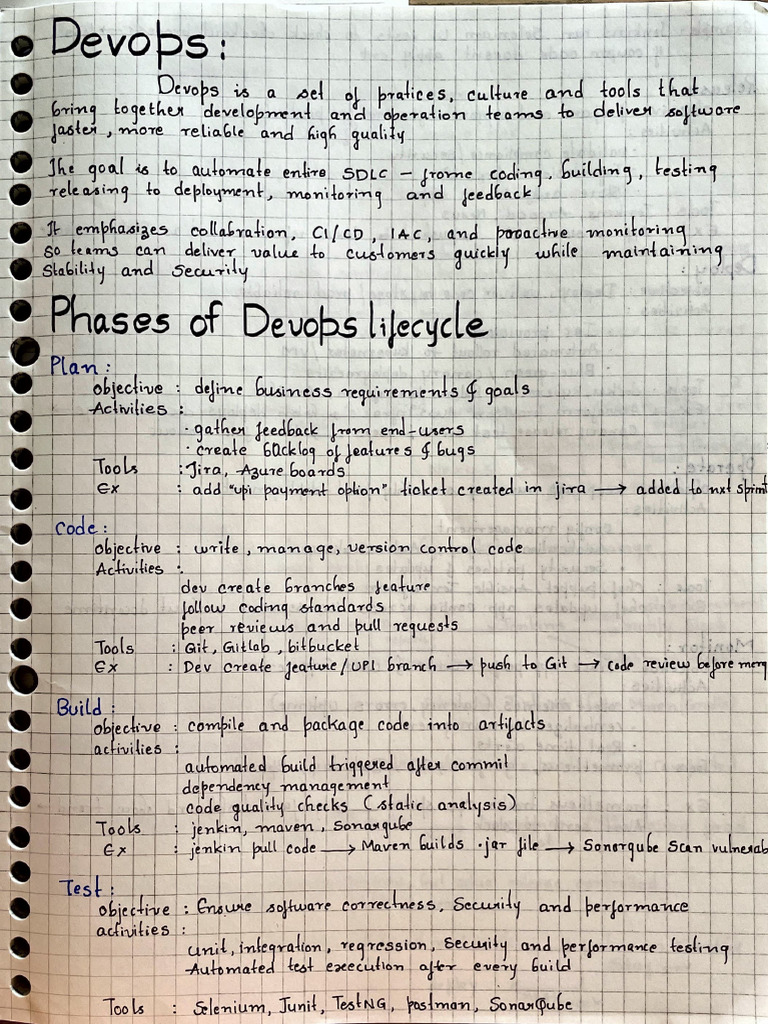 Devops:
Devops is a set of pratices, culture and tools that
bring together development and operation teams to deliver software
faster, more reliable and high quality
The goal is to automate entire SDLC – frome coding, building, testing
releasing to deployment, monitoring and feedback
It emphasizes collabration, CI/CD, IAC, and proactive monitoring
so teams can deliver value to customers quickly while maintaining
stability and security
Phases of Devops lifecycle
Plan:
objective : define business requirements & goals
Activities :
· gather feedback from end-users
· create backlog of features & bugs
Tools : Jira, Azure boards
Ex : add "upi payment option" ticket created in jira → added to nxt sprint
Code:
objective : write, manage, version control code
Activities :
dev create branches feature
follow coding standards
peer reviews and pull requests
Tools : Git, Gitlab, bitbucket
Ex : Dev create feature/UPI branch → push to Git → code review before merg
Build:
objective : compile and package code into artifacts
activities :
automated build triggered after commit
dependency management
code quality checks (static analysis)
Tools : jenkin, maven, Sonarqube
Ex : jenkin pull code → Maven builds .jar file → Sonorqube scan vulnerab
Test:
objective : Ensure software correctness, Security and performance
activities :
unit, integration, regression, Security and performance testing
Automated test execution after every build
Tools : Selenium, Junit, TestNG, postman, SonarQube